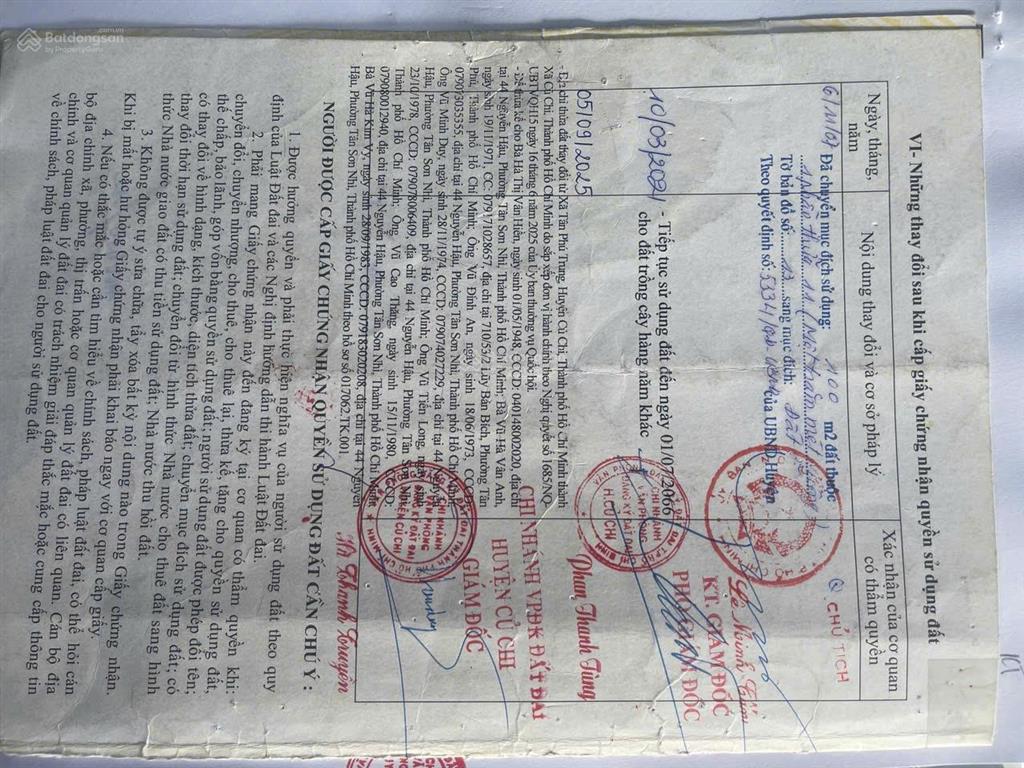 Batdongsan
by PropertyGuru
VI- Những thay đổi sau khi cấp giấy chứng nhận quyền sử dụng đất
Ngày, tháng, năm
Nội dung thay đổi và cơ sở pháp lý
Xác nhận của cơ quan có thẩm quyền
Đã chuyển mục đích sử dụng: 100 m2 đất thuộc
Tờ bản đồ số: 13 sang mục đích: Đất
Theo quyết định số của UBND Huyện
CHỦ TỊCH
10/03/2021
- Tiếp tục sử dụng đất đến ngày 01/07/2066
cho đất trồng cây hàng năm khác
KT. GIÁM ĐỐC
PHÓ GIÁM ĐỐC
Phan Thanh Tùng
05/09/2025
- Địa chỉ thửa đất thay đổi từ Xã Tân Phú Trung, Huyện Củ Chi, Thành phố Hồ Chí Minh thành
Xã Củ Chi, Thành phố Hồ Chí Minh do sắp xếp đơn vị hành chính theo Nghị quyết số 1685/NQ-
UBTVQH15 ngày 16 tháng 6 năm 2025 của Ủy ban thường vụ Quốc hội.
- Để thừa kế cho Bà Hà Thị Vân Hiền, ngày sinh 01/05/1948, CCCD: 040148002020, địa chỉ
tại 44 Nguyễn Hậu, Phường Tân Sơn Nhì, Thành phố Hồ Chí Minh; Bà Vũ Hà Vân Anh,
ngày sinh 19/11/1971, CC: 079171028657, địa chỉ tại 71D53/2 Lũy Bán Bích, Phường Tân
Phú, Thành phố Hồ Chí Minh; Ông Vũ Đình An, ngày sinh 18/06/1973, CCCD:
079073035355, địa chỉ tại 44 Nguyễn Hậu, Phường Tân Sơn Nhì, Thành phố Hồ Chí Minh;
Ông Vũ Minh Duy, ngày sinh 28/11/1974, CCCD: 079074027229, địa chỉ tại 44 Nguyễn
Hậu, Phường Tân Sơn Nhì, Thành phố Hồ Chí Minh; Ông Vũ Tiến Long, ngày sinh
23/10/1978, CCCD: 079078006409, địa chỉ tại 44 Nguyễn Hậu, Phường Tân Sơn Nhì,
Thành phố Hồ Chí Minh; Ông Vũ Cao Thắng, ngày sinh 15/11/1980, CCCD:
079080012940, địa chỉ tại 44 Nguyễn Hậu, Phường Tân Sơn Nhì, Thành phố Hồ Chí Minh;
Bà Vũ Hà Kim Vy, ngày sinh 28/09/1983, CCCD: 079183020208, địa chỉ tại 44 Nguyễn
Hậu, Phường Tân Sơn Nhì, Thành phố Hồ Chí Minh theo hồ sơ số 017062.TK.001.
CHI NHÁNH VPĐK ĐẤT ĐAI
HUYỆN CỦ CHI
GIÁM ĐỐC
NGƯỜI ĐƯỢC CẤP GIẤY CHỨNG NHẬN QUYỀN SỬ DỤNG ĐẤT CẦN CHÚ Ý :
1. Được hưởng quyền và phải thực hiện nghĩa vụ của người sử dụng đất theo quy
định của Luật Đất đai và các Nghị định hướng dẫn thi hành Luật Đất đai.
2. Phải mang Giấy chứng nhận này đến đăng ký tại cơ quan có thẩm quyền khi:
chuyển đổi, chuyển nhượng, cho thuê, cho thuê lại, thừa kế, tặng cho quyền sử dụng đất,
thế chấp, bảo lãnh, góp vốn bằng quyền sử dụng đất; người sử dụng đất được phép đổi tên;
có thay đổi về hình dạng, kích thước, diện tích thửa đất; chuyển mục đích sử dụng đất; có
thay đổi thời hạn sử dụng đất; chuyển đổi từ hình thức Nhà nước cho thuê đất sang hình
thức Nhà nước giao đất có thu tiền sử dụng đất; Nhà nước thu hồi đất.
3. Không được tự ý sửa chữa, tẩy xóa bất kỳ nội dung nào trong Giấy chứng nhận.
Khi bị mất hoặc hư hỏng Giấy chứng nhận phải khai báo ngay với cơ quan cấp giấy.
4. Nếu có thắc mắc hoặc cần tìm hiểu về chính sách, pháp luật đất đai, có thể hỏi cán
bộ địa chính xã, phường, thị trấn hoặc cơ quan quản lý đất đai có liên quan. Cán bộ địa
chính và cơ quan quản lý đất đai có trách nhiệm giải đáp thắc mắc hoặc cung cấp thông tin
về chính sách, pháp luật đất đai cho người sử dụng đất.